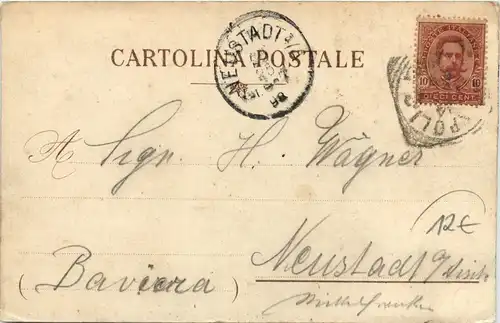 CARTOLINA POSTALE
NEUSTADT a/A
98
POSTE ITALIANE
10 10
DIECI CENT.
A Sign. H. Wagner
12€
Neustadt a/Aisch
(Baviera)
Mittelfranken